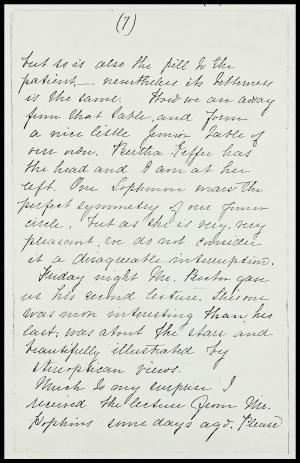 (7)
but so is also the pill to the
patient — nevertheless its bitterness
is the same. Now we are away
from that table, and form
a nice little Junior table of
our own. Bertha has
the head and I am at her
left. One Sophmore mars the
perfect symmetry of our Junior
circle, but as she is very, very
pleasant, we do not consider
it a disagreeable interruption.
Friday night Mr. gave
us his second lecture. This one
was more interesting than his
last; was about the stars and
beautifully illustrated by
stereoptican views.
Much to my surprise I
received the lecture from Mr.
Hopkins some days ago. Please